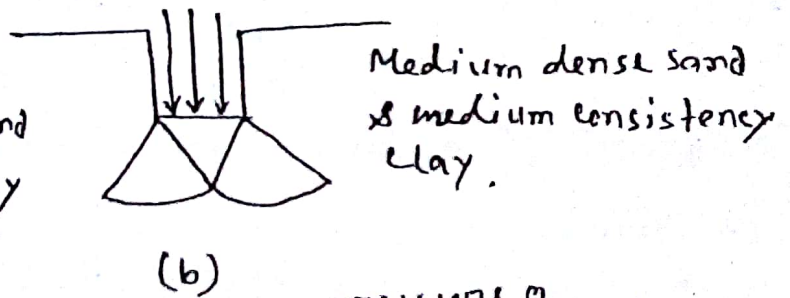 Medium dense sand
nd
& medium consistency
y
clay.
(b)